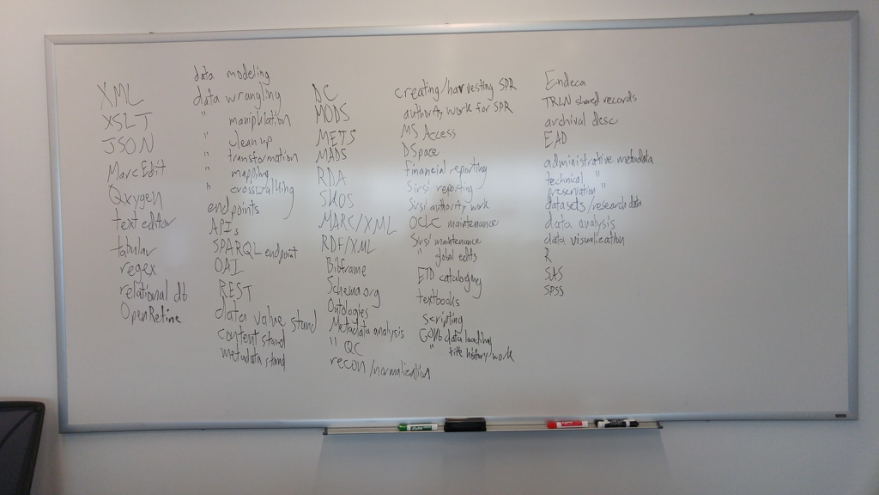 XML
XSLT
JSON
MarcEdit
Oxygen
text editor
tabular
regex
relational db
OpenRefine
data modeling
data wrangling
" manipulation
" cleanup
" transformation
" mapping
" crosswalking
endpoints
APIs
SPARQL endpoint
OAI
REST
data value stand
content stand
metadata stand
DC
MODS
METS
MADS
RDA
SKOS
MARC/XML
RDF/XML
Bibframe
Schema.org
Ontologies
Metadata analysis
" QC
recon/normalization
creating/harvesting SPR
authority work for SPR
MS Access
DSpace
financial reporting
Sirsi reporting
Sirsi authority work
OCLC maintenance
Sirsi maintenance
" global edits
ETD cataloging
textbooks
scripting
GOKb data loading
" title history work
Endeca
TRLN shared records
archival desc
EAD
administrative metadata
technical "
preservation "
datasets/research data
data analysis
data visualization
R
SAS
SPSS